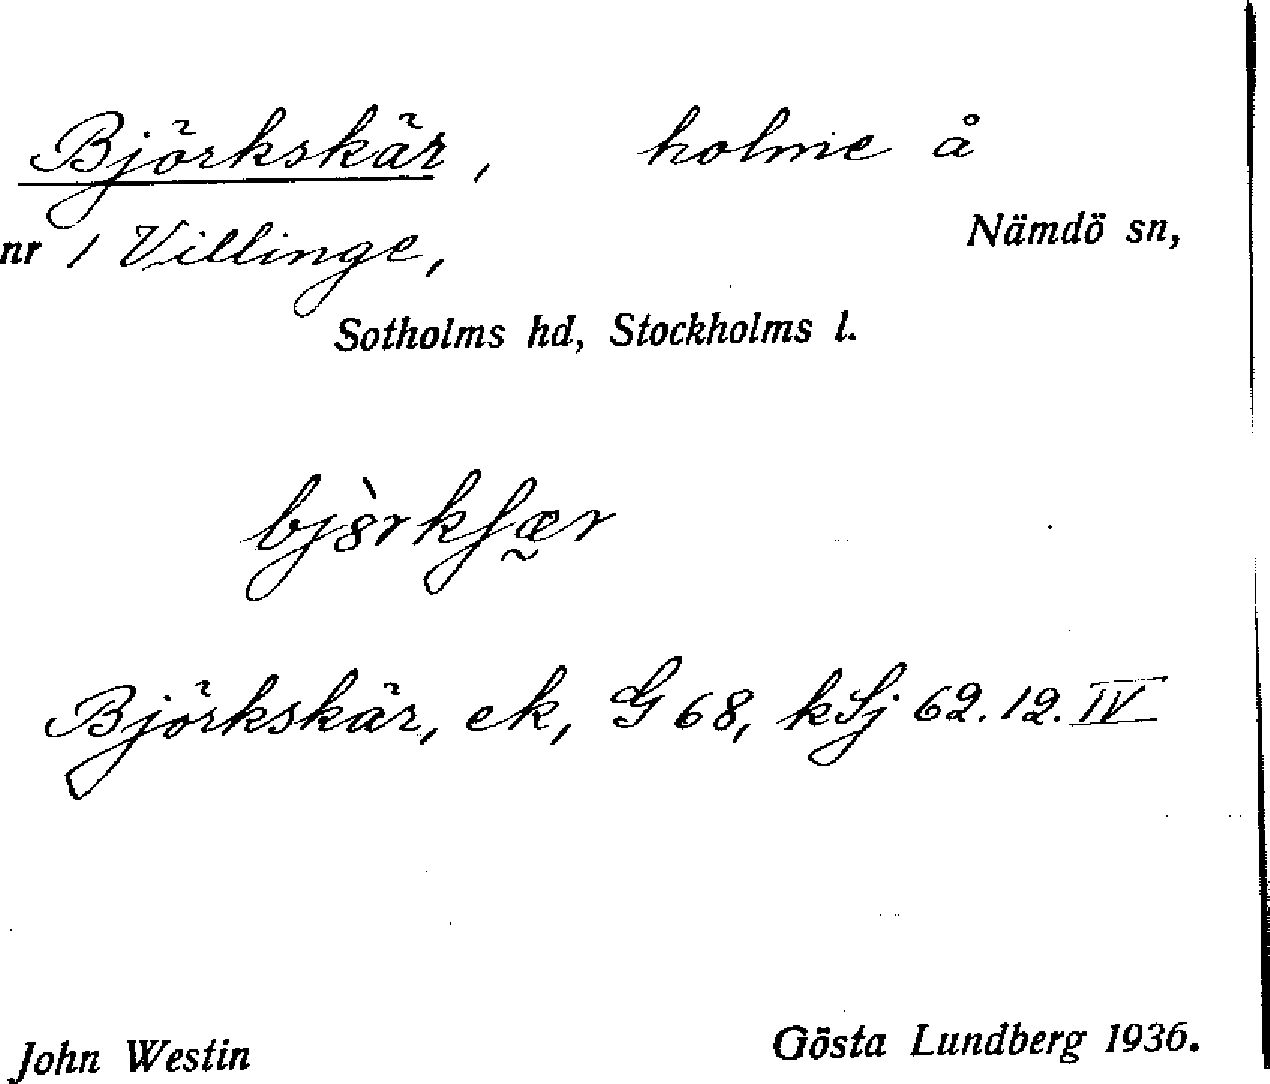 Björkskär, holme å
nr 1 Villinge, Nämdö sn,
Sotholms hd, Stockholms l.
bjȣ̀rkʃæ̰r
Björkskär, ek, G 68, kSj 62.12.IV
John Westin Gösta Lundberg 1936.